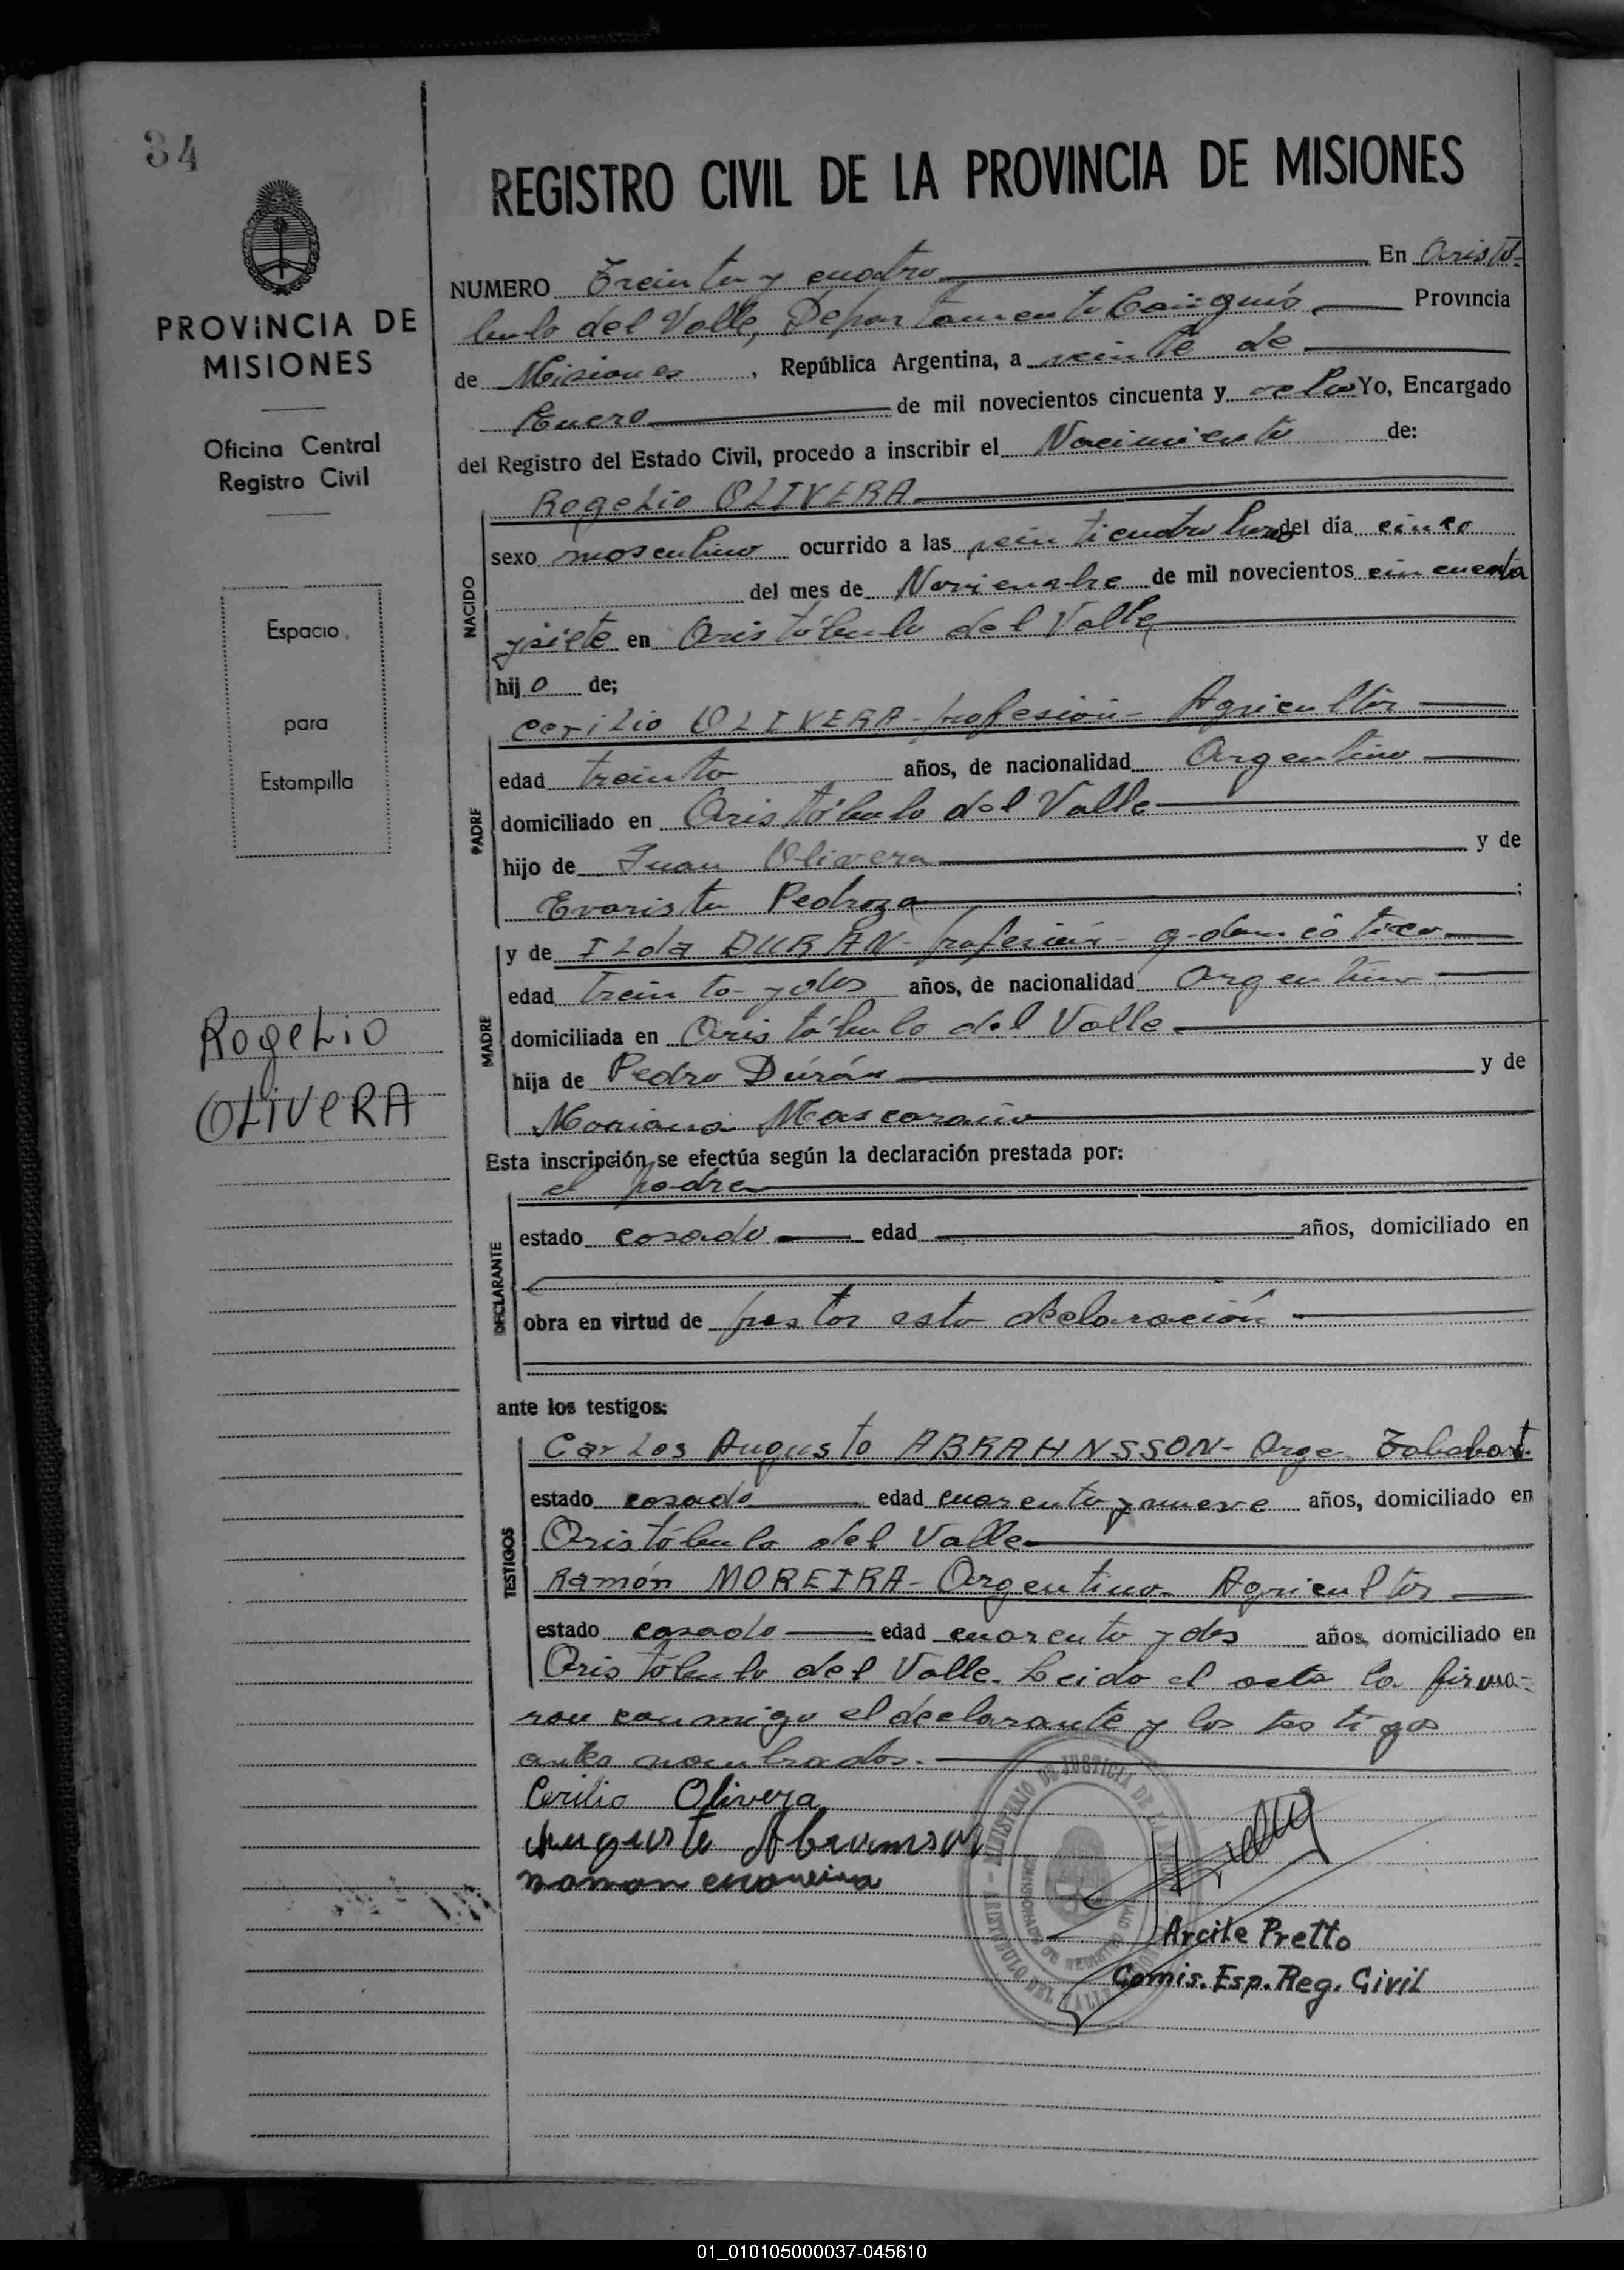 34
PROVINCIA DE
MISIONES
Oficina Central
Registro Civil
Espacio
para
Estampilla
Rogelio
OLIVERA
REGISTRO CIVIL DE LA PROVINCIA DE MISIONES
NUMERO Treinta y cuatro En Aristó-
bulo del Valle, Departamento Cainguás Provincia
de Misiones, República Argentina, a veinte de
Enero de mil novecientos cincuenta y ocho Yo, Encargado
del Registro del Estado Civil, procedo a inscribir el Nacimiento de:
Rogelio OLIVERA
NACIDO
sexo masculino ocurrido a las veinticuatro horas del día cinco
del mes de Noviembre de mil novecientos cincuenta
y siete en Aristóbulo del Valle
hijo de;
PADRE
Cerilio OLIVERA - profesión - Agricultor
edad treinta años, de nacionalidad Argentino
domiciliado en Aristóbulo del Valle
hijo de Juan Olivera y de
Evarista Pedroza;
MADRE
y de Ilda DURAN - profesión - q. doméstico
edad treinta y dos años, de nacionalidad Argentina
domiciliada en Aristóbulo del Valle
hija de Pedro Dúrán y de
Mariana
Esta inscripción se efectúa según la declaración prestada por:
el padre
DECLARANTE
estado casado edad años, domiciliado en
obra en virtud de prestar esta declaración
ante los testigos:
TESTIGOS
Carlos Augusto ABRAHNSSON - Arge.
estado casado edad cuarenta y nueve años, domiciliado en
Aristóbulo del Valle
Ramón MOREIRA - Argentino - Agricultor
estado casado edad cuarenta y dos años, domiciliado en
Aristóbulo del Valle. Leido el acta la firma=
ron conmigo el declarante y los testigos
antes nombrados.
Cerilio Olivera
Augusto
Arcile Pretto
Comis. Esp. Reg. Civil
MINISTERIO DE JUSTICIA DE LA
ARISTOBULO DEL VALLE
01_010105000037-045610